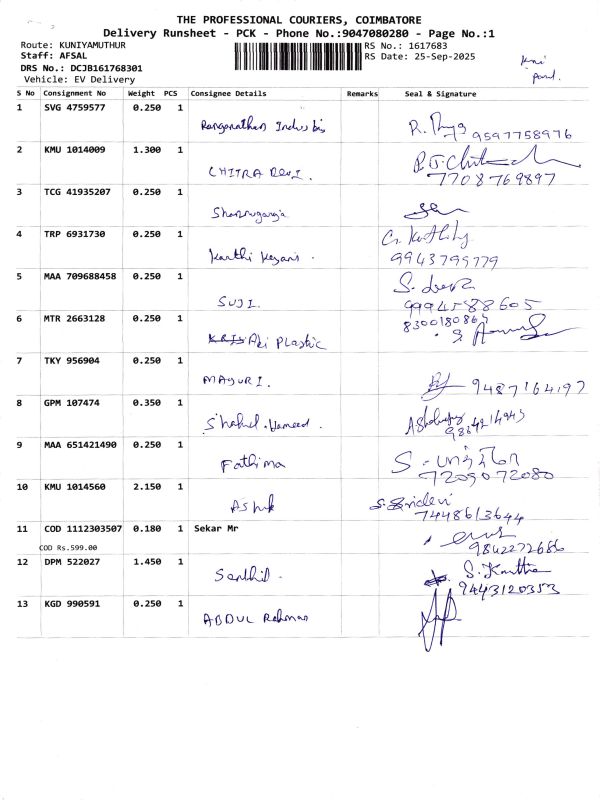 THE PROFESSIONAL COURIERS, COIMBATORE
Delivery Runsheet - PCK - Phone No.:9047080280 - Page No.:1
Route: KUNIYAMUTHUR
RS No.: 1617683
Staff: AFSAL
RS Date: 25-Sep-2025
DRS No.: DCJB161768301
Vehicle: EV Delivery
S No Consignment No Weight PCS Consignee Details Remarks Seal & Signature
1 SVG 4759577 0.250 1
Ranganathan R. 9597758976
2 KMU 1014009 1.300 1
CHITRA DEVI.
7708769897
3 TCG 41935207 0.250 1
4 TRP 6931730 0.250 1
Karthi
9943799779
5 MAA 709688458 0.250 1
SUJI. S.
9994588605
6 MTR 2663128 0.250 1
Plastic S.
7 TKY 956904 0.250 1
MAYURI. 9487164197
8 GPM 107474 0.350 1
Shahul.Hameed.
9 MAA 651421490 0.250 1
Fathima 7209072080
10 KMU 1014560 2.150 1
S.Sridevi
7448613644
11 COD 1112303507 0.180 1 Sekar Mr
COD Rs.599.00
9842272686
12 DPM 522027 1.450 1
Senthil. 9443120353
13 KGD 990591 0.250 1
ABDUL Rahman